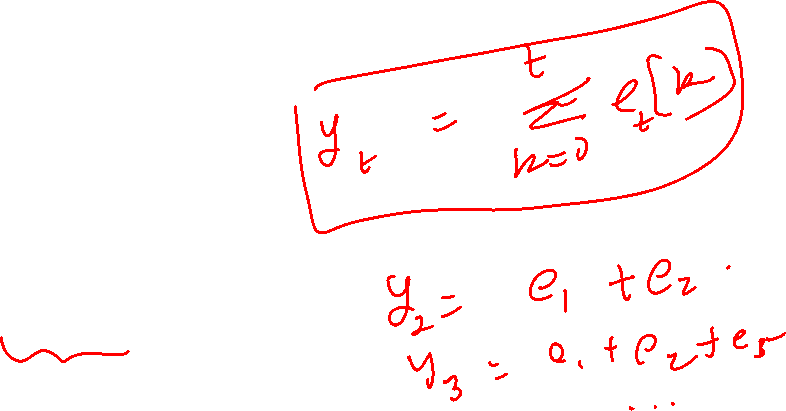 y_t = \sum_{k=0}^{t} e_t(k)
y_2 = e_1 + e_2 .
y_3 = e_1 + e_2 + e_3
...